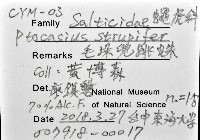 CYM-03
Family Salticidae 蠅虎科
Ptocasius strupifer
Remarks 毛垛兜跳蛛
Coll: 黃博森
Det. National Museum
70% Alc. F. of Natural Science n=1♂
Date 2018.3.27 台中東海大學
007918-00017